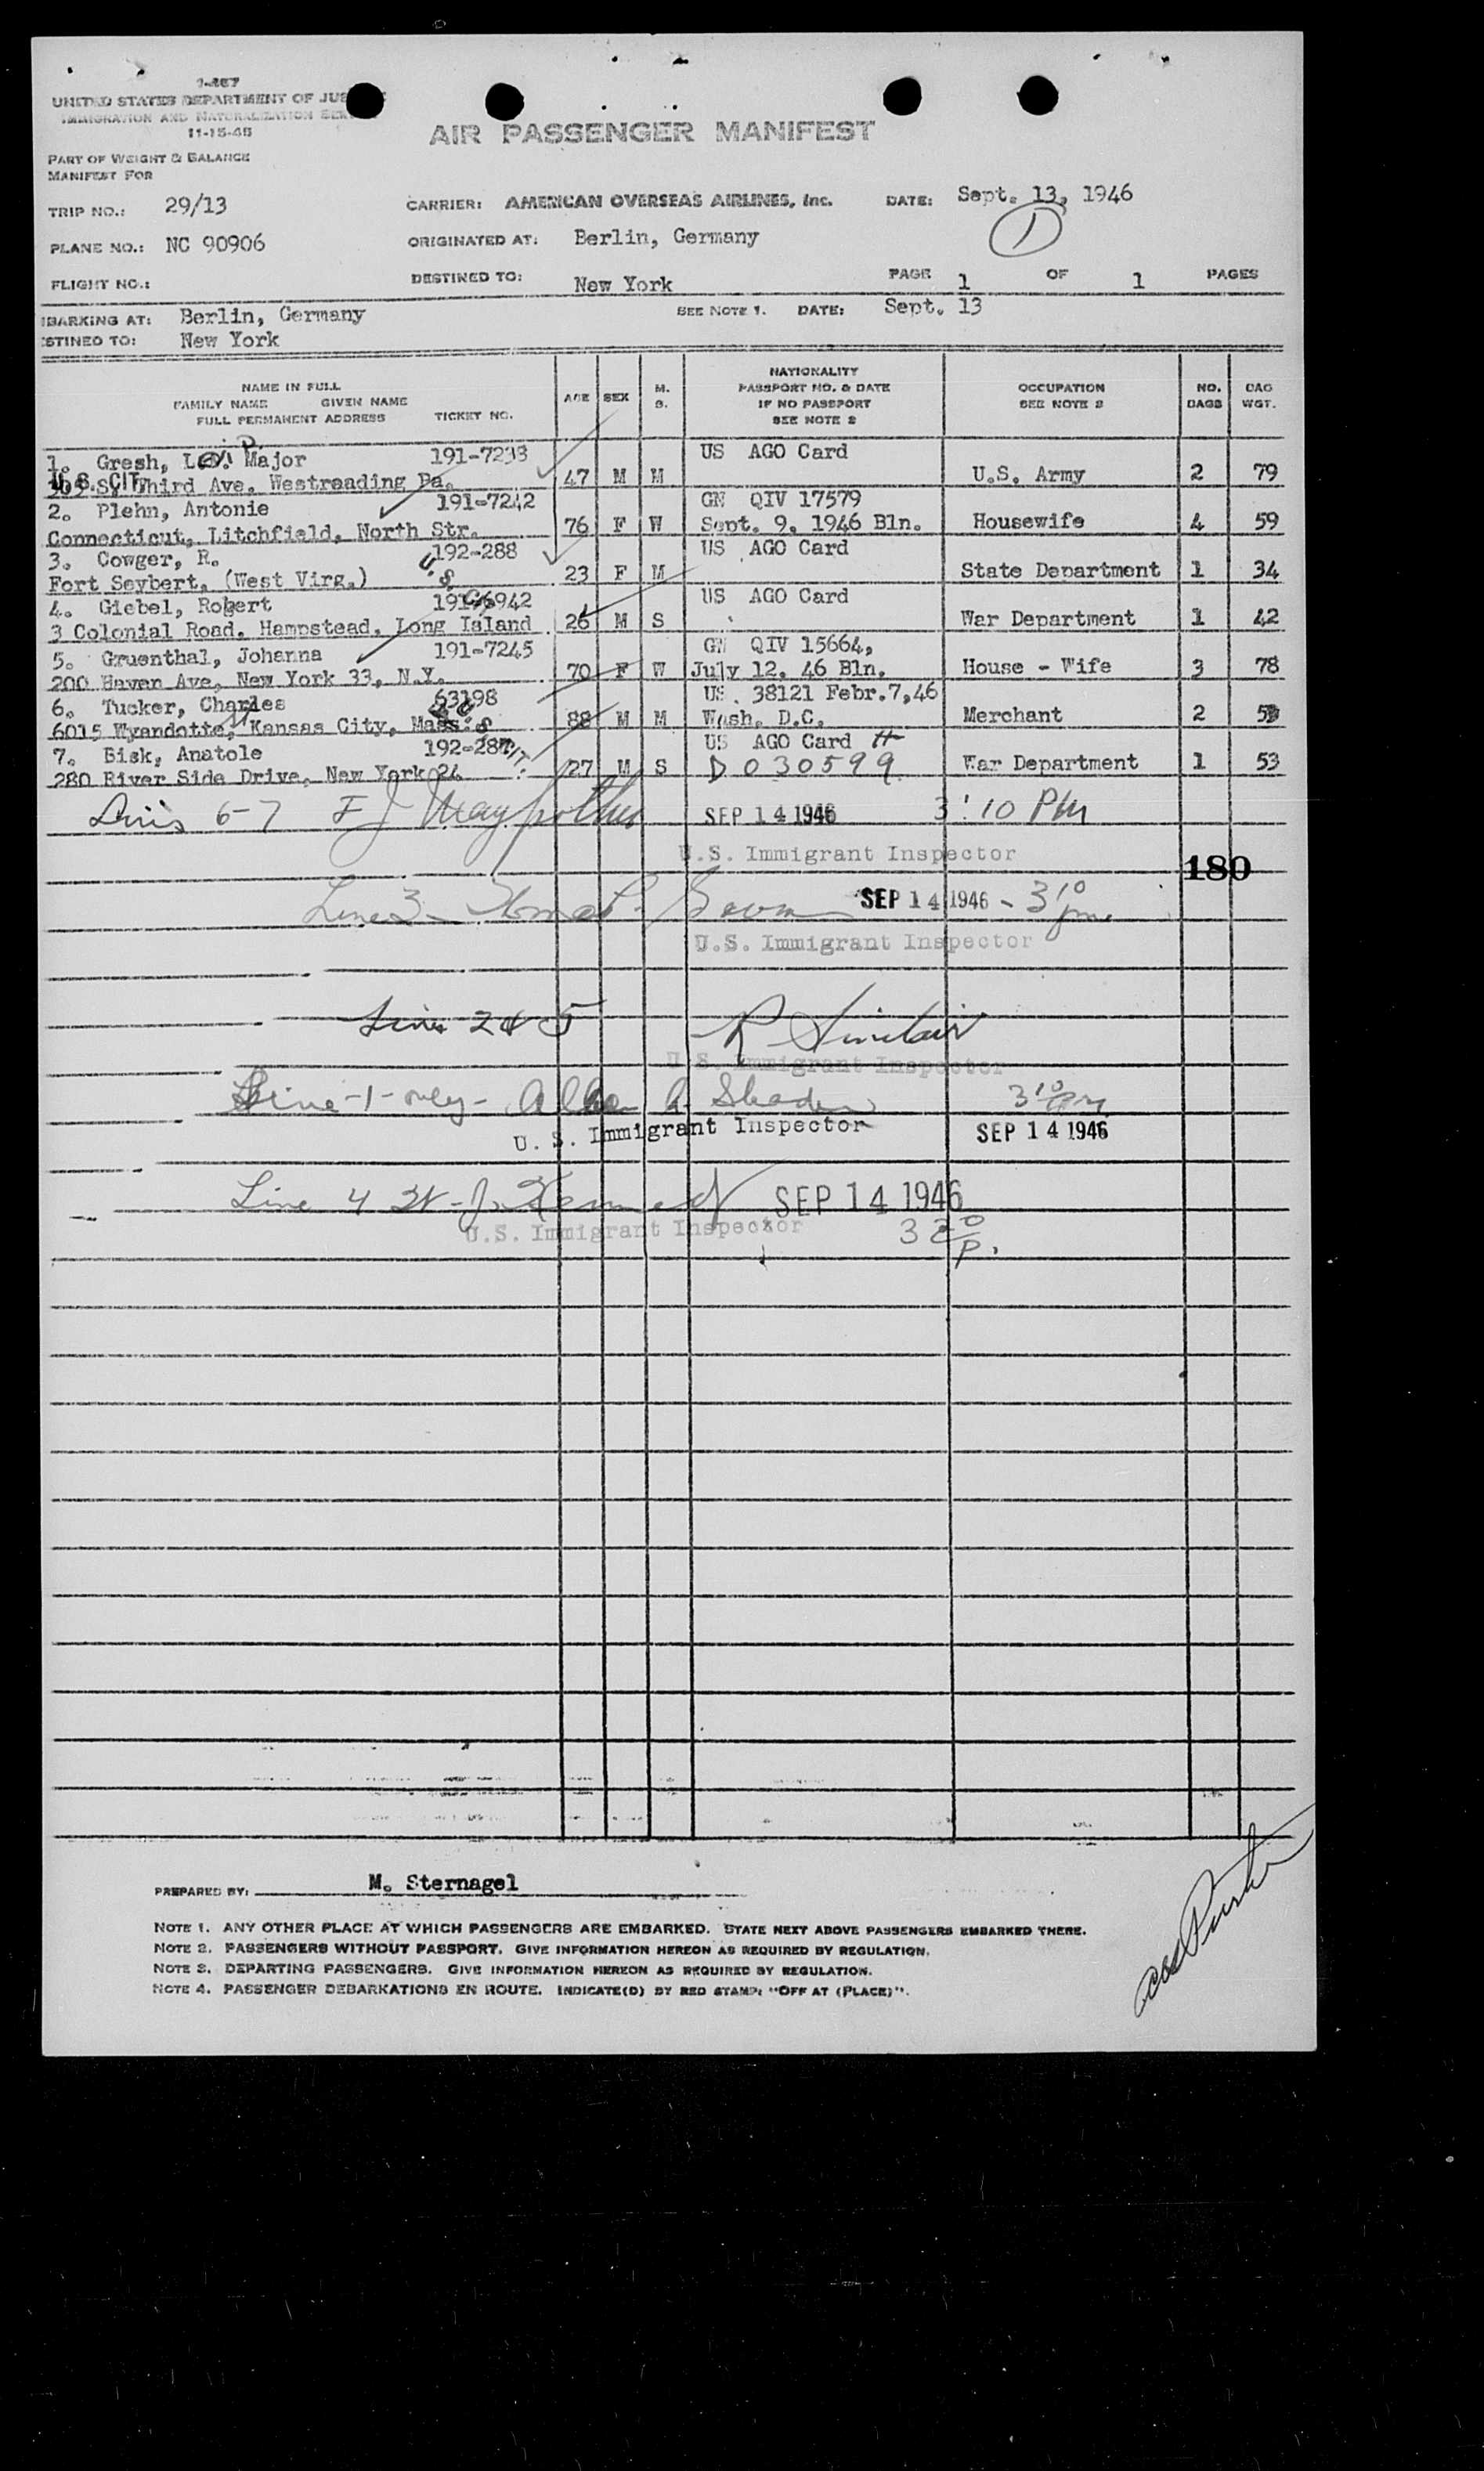 1-467
UNITED STATES DEPARTMENT OF JUS
IMMIGRATION AND NATURALIZATION SER
11-15-45
AIR PASSENGER MANIFEST
PART OF WEIGHT & BALANCE
MANIFEST FOR
TRIP NO.: 29/13 CARRIER: AMERICAN OVERSEAS AIRLINES, Inc. DATE: Sept. 13, 1946
1
PLANE NO.: NC 90906 ORIGINATED AT: Berlin, Germany
FLIGHT NO.: DESTINED TO: New York PAGE 1 OF 1 PAGES
BARKING AT: Berlin, Germany SEE NOTE 1. DATE: Sept. 13
STINED TO: New York
NAME IN FULL
FAMILY NAME GIVEN NAME
FULL PERMANENT ADDRESS TICKET NO. AGE SEX M. S. NATIONALITY PASSPORT NO. & DATE IF NO PASSPORT SEE NOTE 2 OCCUPATION SEE NOTE 2 NO. BAGS BAG WGT.
1. Gresh, Major 191-7238 US AGO Card
U.S. CIT. S. Third Ave. Westreading Pa. 47 M M U.S. Army 2 79
2. Plehn, Antonie 191-7242 GN QIV 17579
Connecticut, Litchfield, North Str. 76 F W Sept. 9, 1946 Bln. Housewife 4 59
3. Cowger, R. 192-288 US AGO Card
Fort Seybert, (West Virg.) U.S. 23 F M State Department 1 34
4. Giebel, Robert 191-6942 US AGO Card
3 Colonial Road, Hampstead, Long Island 26 M S War Department 1 42
5. Gruenthal, Johanna 191-7245 GN QIV 15664,
200 Haven Ave, New York 33, N.Y. 70 F W July 12, 46 Bln. House - Wife 3 78
6. Tucker, Charles 63198 US. 38121 Febr.7,46
6015 Wyandotte, Kansas City, 88 M M Wash. D.C. Merchant 2
7. Bisk, Anatole 192-287 US AGO Card #
280 River Side Drive, New York 24 27 M S D 030599 War Department 1 53
6-7 SEP 14 1946 3:10 PM
U.S. Immigrant Inspector 180
Line 3 - SEP 14 1946 - 3 10 pm
U.S. Immigrant Inspector
Line 2 & 5 R Sinclair
U.S. Immigrant Inspector
Line -1- only - 3 10 pm
U. S. Immigrant Inspector SEP 14 1946
Line 4 SEP 14 1946
U.S. Immigrant Inspector 3 20 p.
PREPARED BY: M. Sternagel
NOTE 1. ANY OTHER PLACE AT WHICH PASSENGERS ARE EMBARKED. STATE NEXT ABOVE PASSENGERS EMBARKED THERE.
NOTE 2. PASSENGERS WITHOUT PASSPORT. GIVE INFORMATION HEREON AS REQUIRED BY REGULATION.
NOTE 3. DEPARTING PASSENGERS. GIVE INFORMATION HEREON AS REQUIRED BY REGULATION.
NOTE 4. PASSENGER DEBARKATIONS EN ROUTE. INDICATE(D) BY RED STAMP: "OFF AT (PLACE)".